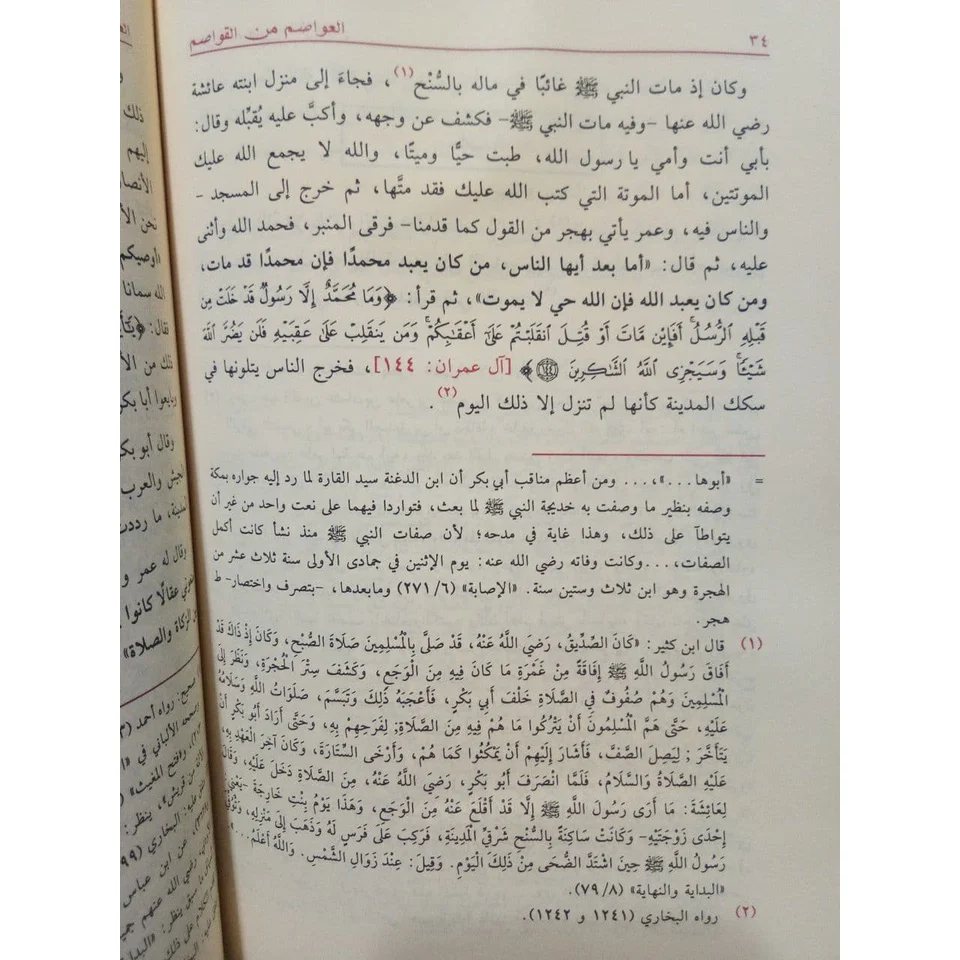 ٣٤
العواصم من القواصم
وكان إذ مات النبي ﷺ غائبًا في ماله بالسُّنْح(١)، فجاءَ إلى منزل ابنته عائشة
رضي الله عنها -وفيه مات النبي ﷺ- فكشف عن وجهه، وأكبَّ عليه يُقبِّله وقال:
بأبي أنت وأمي يا رسول الله، طبت حيًّا وميتًا، والله لا يجمع الله عليك
الموتتين، أما الموتة التي كتب الله عليك فقد متَّها، ثم خرج إلى المسجد -
والناس فيه، وعمر يأتي بهجر من القول كما قدمنا- فرقى المنبر، فحمد الله وأثنى
عليه، ثم قال: «أما بعد أيها الناس، من كان يعبد محمدًا فإن محمدًا قد مات،
ومن كان يعبد الله فإن الله حي لا يموت»، ثم قرأ: ﴿وَمَا مُحَمَّدٌ إِلَّا رَسُولٌ قَدْ خَلَتْ مِن
قَبْلِهِ الرُّسُلُ أَفَإِيْن مَّاتَ أَوْ قُتِلَ انقَلَبْتُمْ عَلَىٰ أَعْقَابِكُمْ وَمَن يَنقَلِبْ عَلَىٰ عَقِبَيْهِ فَلَن يَضُرَّ اللَّهَ
شَيْئًا وَسَيَجْزِى اللَّهُ الشَّاكِرِينَ ١٤٤﴾ [آل عمران: ١٤٤]، فخرج الناس يتلونها في
سكك المدينة كأنها لم تنزل إلا ذلك اليوم(٢).
= «أبوها...»،... ومن أعظم مناقب أبي بكر أن ابن الدغنة سيد القارة لما رد إليه جواره بمكة
وصفه بنظير ما وصفت به خديجة النبي ﷺ لما بعث، فتواردا فيهما على نعت واحد من غير أن
يتواطآ على ذلك، وهذا غاية في مدحه؛ لأن صفات النبي ﷺ منذ نشأ كانت أكمل
الصفات،...وكانت وفاته رضي الله عنه: يوم الإثنين في جمادى الأولى سنة ثلاث عشر من
الهجرة وهو ابن ثلاث وستين سنة. «الإصابة» (٢٧١/٦) ومابعدها، -بتصرف واختصار- ط
هجر.
(١) قال ابن كثير: «كَانَ الصِّدِّيقُ، رَضِيَ اللَّهُ عَنْهُ، قَدْ صَلَّى بِالْمُسْلِمِينَ صَلَاةَ الصُّبْحِ، وَكَانَ إِذْ ذَاكَ قَدْ
أَفَاقَ رَسُولُ اللَّهِ ﷺ إِفَاقَةً مِنْ غَمْرَةِ مَا كَانَ فِيهِ مِنَ الْوَجَعِ، وَكَشَفَ سِتْرَ الْحُجْرَةِ، وَنَظَرَ إِلَى
الْمُسْلِمِينَ وَهُمْ صُفُوفٌ فِي الصَّلَاةِ خَلْفَ أَبِي بَكْرٍ، فَأَعْجَبَهُ ذَلِكَ وَتَبَسَّمَ، صَلَوَاتُ اللَّهِ وَسَلَامُهُ
عَلَيْهِ، حَتَّى هَمَّ الْمُسْلِمُونَ أَنْ يَتْرُكُوا مَا هُمْ فِيهِ مِنَ الصَّلَاةِ; لِفَرَحِهِمْ بِهِ، وَحَتَّى أَرَادَ أَبُو بَكْرٍ أَنْ
يَتَأَخَّرَ ; لِيَصِلَ الصَّفَّ، فَأَشَارَ إِلَيْهِمْ أَنْ يَمْكُثُوا كَمَا هُمْ، وَأَرْخَى السِّتَارَةَ، وَكَانَ آخِرَ الْعَهْدِ بِهِ،
عَلَيْهِ الصَّلَاةُ وَالسَّلَامُ، فَلَمَّا انْصَرَفَ أَبُو بَكْرٍ، رَضِيَ اللَّهُ عَنْهُ، مِنَ الصَّلَاةِ دَخَلَ عَلَيْهِ، وَقَالَ
لِعَائِشَةَ: مَا أَرَى رَسُولَ اللَّهِ ﷺ إِلَّا قَدْ أَقْلَعَ عَنْهُ مِنَ الْوَجَعِ، وَهَذَا يَوْمُ بِنْتِ خَارِجَةَ -يَعْنِي
إِحْدَى زَوْجَتَيْهِ- وَكَانَتْ سَاكِنَةً بِالسُّنْحِ شَرْقِيَّ الْمَدِينَةِ، فَرَكِبَ عَلَى فَرَسٍ لَهُ وَذَهَبَ إِلَى مَنْزِلِهِ، وَتُوُفِّيَ
رَسُولُ اللَّهِ ﷺ حِينَ اشْتَدَّ الضُّحَى مِنْ ذَلِكَ الْيَوْمِ. وَقِيلَ: عِنْدَ زَوَالِ الشَّمْسِ. وَاللَّهُ أَعْلَمُ...».
«البداية والنهاية» (٧٩/٨).
(٢) رواه البخاري (١٢٤١ و ١٢٤٢).
ذلك
إليهم
الأنصا
نحن الأ
«أوصيكم
الله سمانا
فقال: ﴿يَٰأَ
ذلك من الأ
وبايعوا أبا بكر
وقال أبو بكر
لجيش والعرب
لمدينة، ما رددت
وقال له عمر و
عقالًا كانوا
الزكاة والصلاة»
صحيح: رواه أحمد
وصححه الألباني في
من قريش»، ينظر:
البخاري
عن ابن عباس
رضي الله عنهم